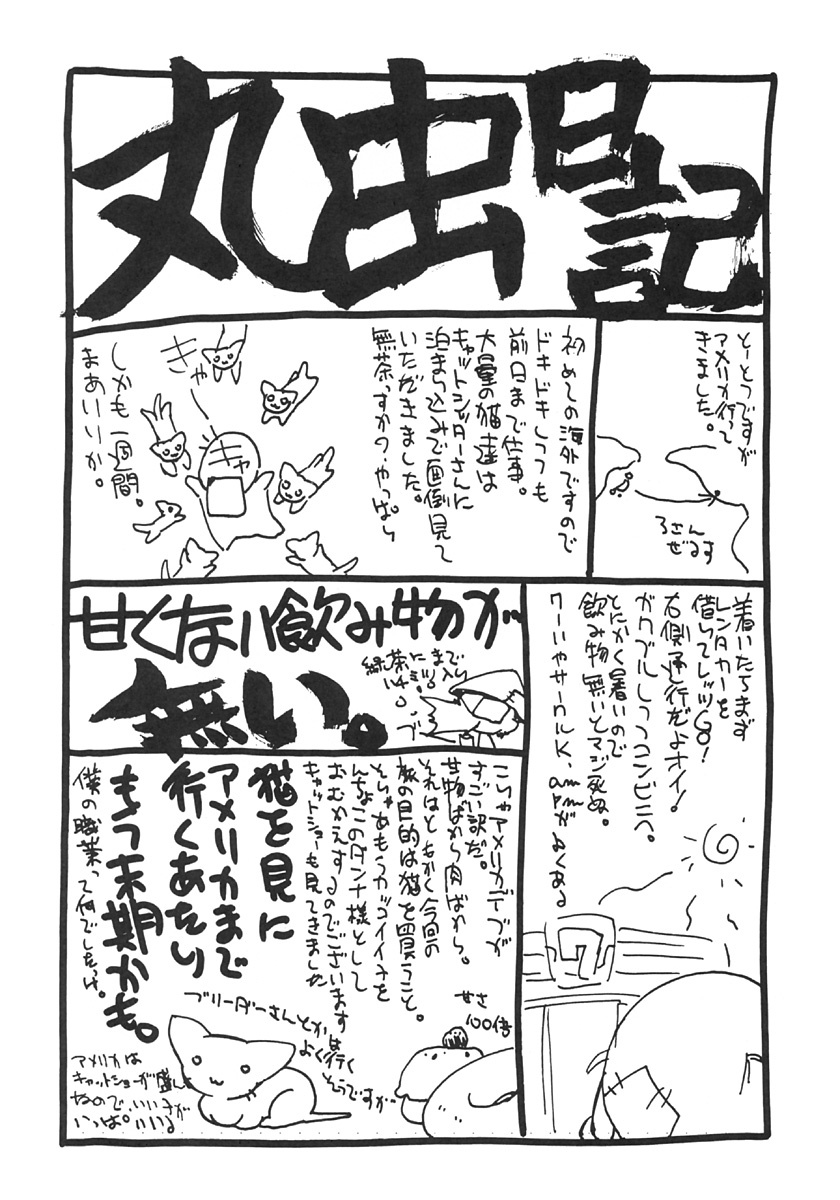 丸虫日記
とーとつですが
アメリカ行って
きました。
ろさん
ぜるす
初めての海外ですので
ドキドキしつつも
前日まで仕事。
大量の猫達は
キャットシッターさんに
泊まり込みで面倒見て
いただきました。
無茶っすか?やっぱり
きゃー
キャ
しかも一週間。
まあいいか。
着いたらまず
レンタカーを
借りてレッツGO!
右側通行だよオイ!
ガクブルしつつコンビニへ。
とにかく暑いので
飲み物無いとマジ死ぬ。
サークルK、ampmがよくある
7
甘くない飲み物が
無い。
緑茶にまで
こりゃアメリカデブが
すごい訳だ。
甘物ばかり肉ばかり。
それはともかく今回の
旅の目的は猫を買うこと。
そりゃあもうカッコイイ子を
んちょこのダンナ様として
おむかえするのでございます
キャットショーも見てきました
猫を見に
アメリカまで
行くあたり
もう末期かも。
僕の職業って何でしたっけ。
甘さ
100倍
ブリーダーさんとかは
よく行く
そうですが
アメリカは
キャットショーが盛んな
なので、いい子が
いっぱいいる